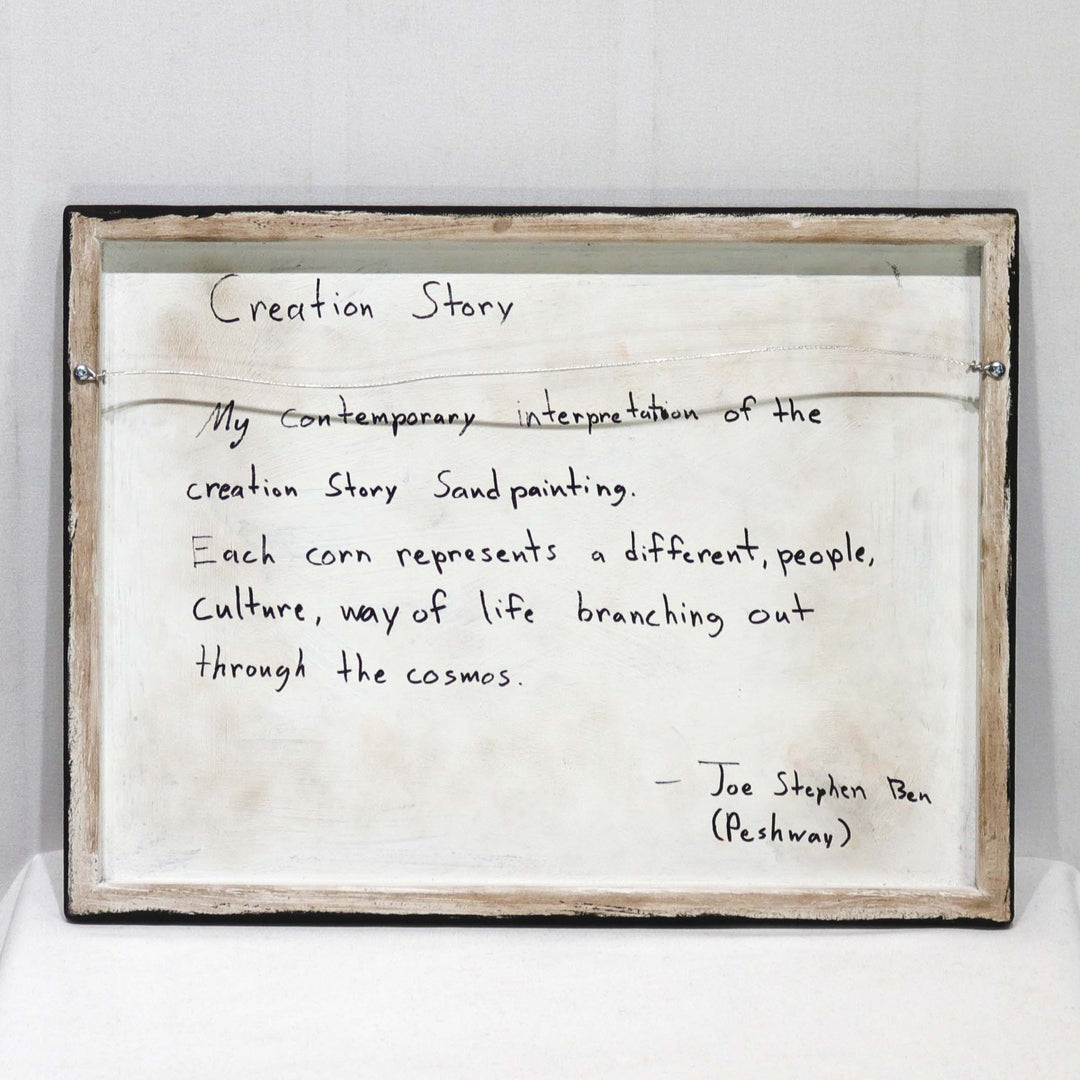 Creation Story
My contemporary interpretation of the
creation Story Sandpainting.
Each corn represents a different, people,
Culture, way of life branching out
through the cosmos.
- Joe Stephen Ben
(Peshway)